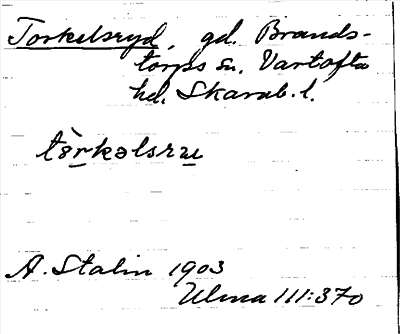 Torkelsryd, gd. Brands-
torps sn. Vartofta
hd. Skarab. l.
tò̤rkəlsrʉ
A. Stalin 1903
Ulma 111:370